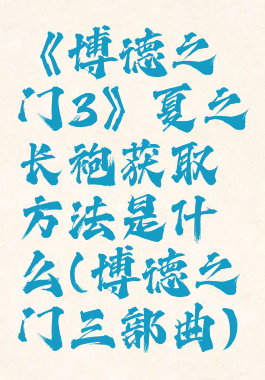 《博德之
门3》夏之
长袍获取
方法是什
么(博德之
门三部曲)